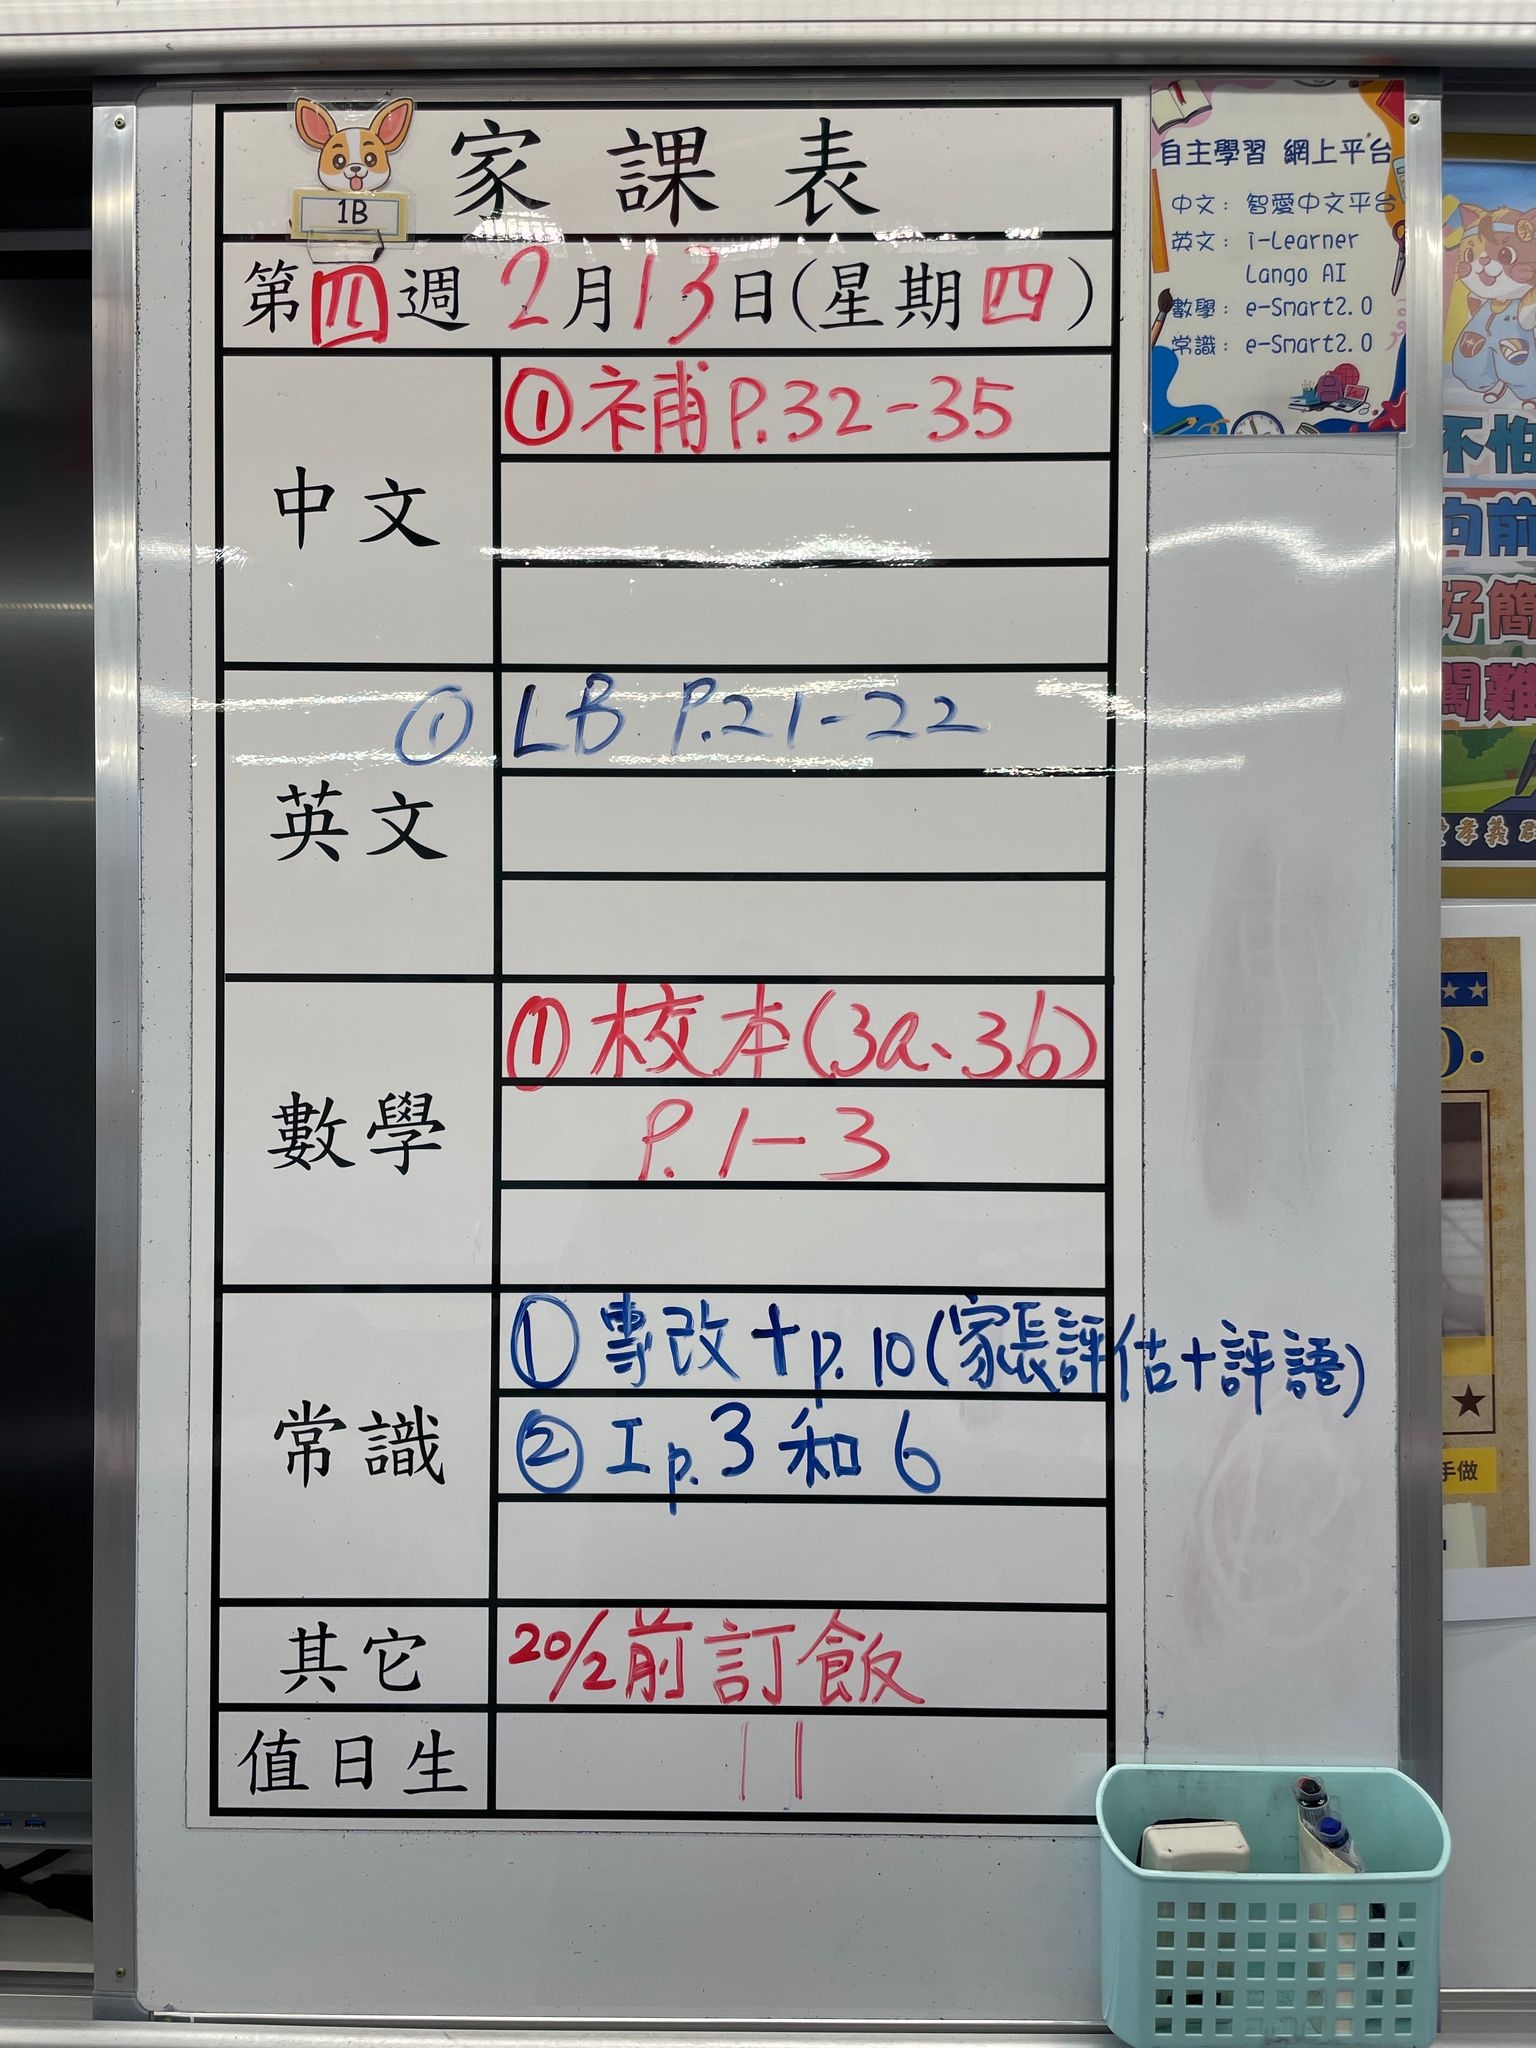 家課表
1B
第四週 2月13日(星期四)
中文
①補P.32-35
英文
① LB P.21-22
數學
①校本(3a、3b)
P.1-3
常識
①專改+p.10(家長評估+評語)
②I p.3和6
其它
20/2前訂飯
值日生
11
自主學習 網上平台
中文: 智愛中文平台
英文: i-Learner
Lango AI
數學: e-Smart2.0
常識: e-Smart2.0
不怕
向前
好簡
闖難
孝義
手做